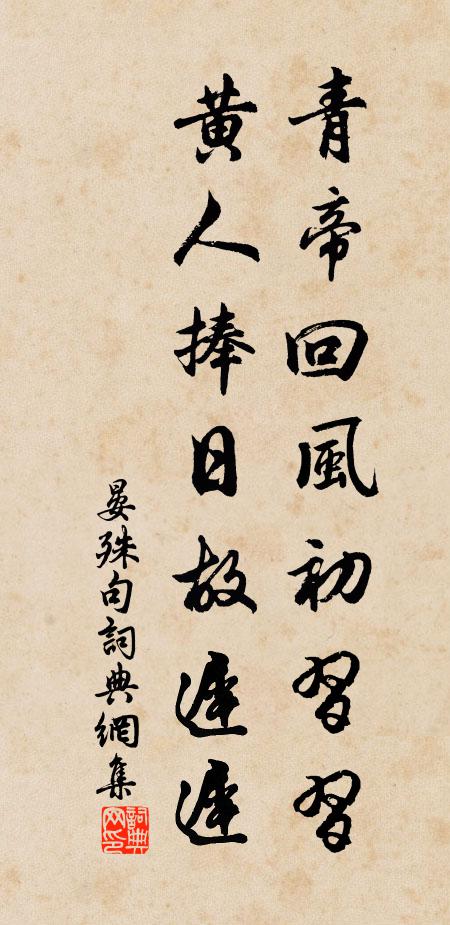 青帝回風初習習
黄人捧日故遲遲
晏殊句詞典網集
詞典网印